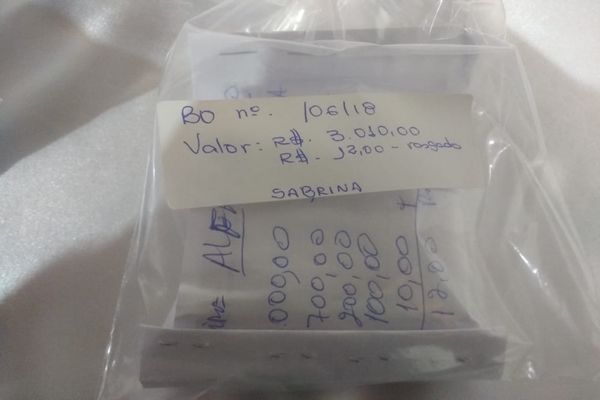 BO nº. /06/18
Valor: R$. 3.010,00
R$. 12,00 - rasgado
SABRINA
000,00
700,00
200,00
100,00
10,00
12,00